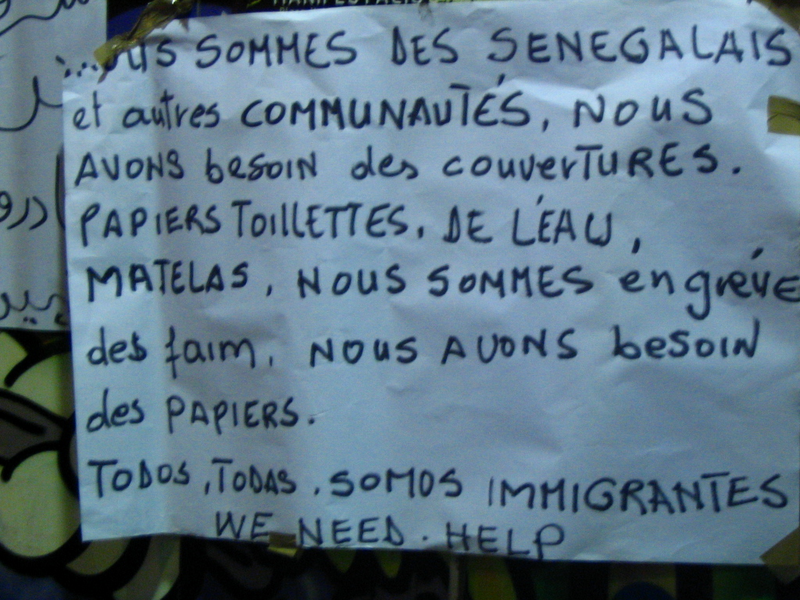 ...OUS SOMMES DES SENEGALAIS
et autres COMMUNAUTÉS, NOUS
AVONS besoin des couverTURES.
PAPIERS TOILLETTES, DE L'ÉAU,
MATELAS, NOUS SOMMES en gréve
des faim, NOUS AVONS besoin
des PAPIERS.
TODOS, TODAS, SOMOS IMMIGRANTES
WE NEED. HELP